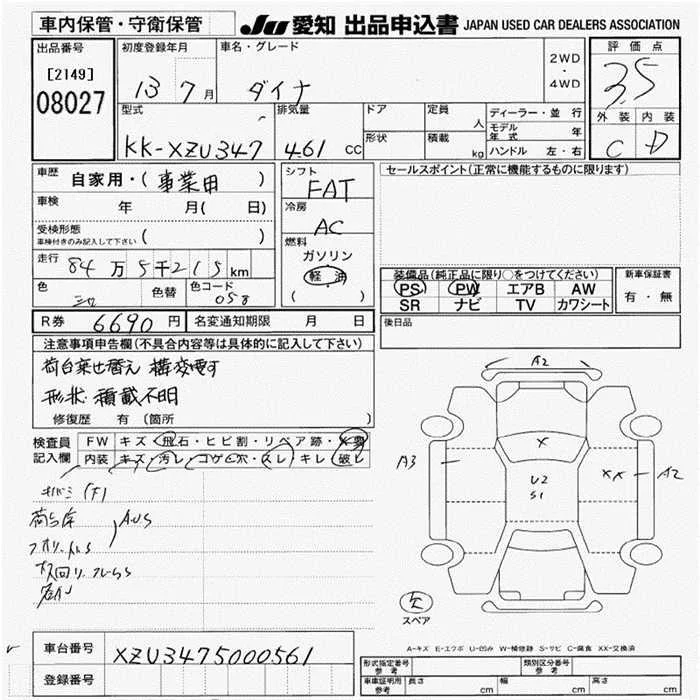 車内保管・守衛保管
JU 愛知 出品申込書 JAPAN USED CAR DEALERS ASSOCIATION
出品番号
[2149]
08027
初度登録年月
13 7月
車名・グレード
ダイナ
2WD
・
4WD
評価点
3.5
外装 内装
C D
型式
KK-XZU347
排気量
4.61 CC
ドア
形状
定員
人
積載
kg
ディーラー・並行
モデル年式 年
ハンドル 左・右
車歴
自家用・(事業用)
車検 年 月( 日)
受検形態
車検付きのみ記入して下さい ( )
走行 84万5千215km
色 色替 色コード 058
シフト
FAT
冷房
AC
燃料
ガソリン
軽油
( )
セールスポイント(正常に機能するものに限ります)
装備品(純正品に限り○をつけてください)
PS PW エアB AW
SR ナビ TV カワシート
新車保証書
有・無
R券 6690円 名変通知期限 月 日
後日品
注意事項申告欄(不具合内容等は具体的に記入して下さい)
荷台乗せ替え 構変要す
形状 積載不明
修復歴 有 (箇所 )
検査員
記入欄
FW キズ・飛石・ヒビ割・リペア跡・×要
内装 キズ・汚レ・コゲ・穴・スレ・キレ・破レ
A2
A3
X
U2
S1
XX
A2
欠
スペア
A-キズ E-エクボ U-凹み W-補修跡 S-サビ C-腐食 XX-交換済
車台番号 XZU3475000561
登録番号
形式指定番号
参考
類別区分番号
参考
車庫証明用
参考
長さ cm 幅 cm 高さ cm